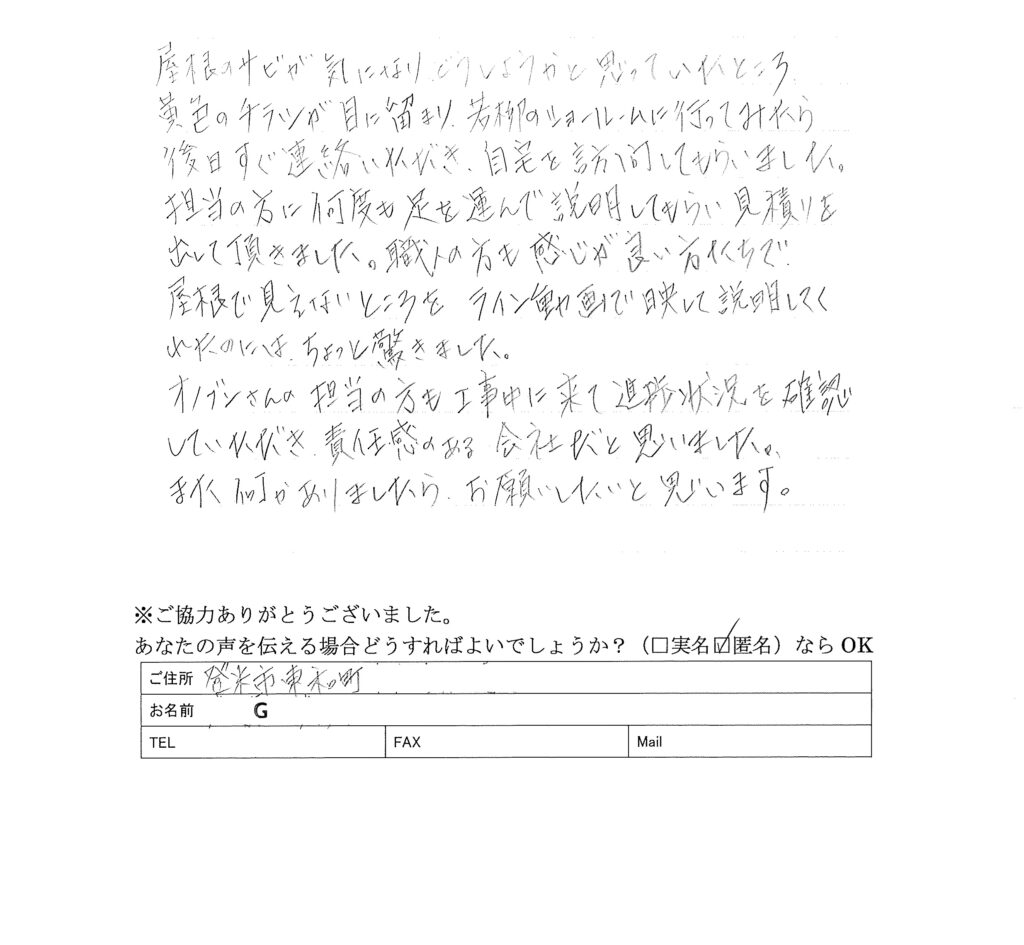 屋根のサビが気になり、どうしようかと思っていたところ、
黄色のチラシが目に留まり、若柳のショールームに行ってみたら
後日すぐ連絡いただき、自宅を訪問してもらいました。
担当の方に何度も足を運んで説明してもらい見積りを
出して頂きました。職人の方も感じが良い方たちで
屋根で見えないところを ライン動画で映して説明してく
れたのには、ちょっと驚きました。
オノブンさんの担当の方も工事中に来て進捗状況を確認
していただき、責任感のある 会社だと思いました。
また何かありましたら、お願いしたいと思います。
※ご協力ありがとうございました。
あなたの声を伝える場合どうすればよいでしょうか？（□実名☑匿名）なら OK
ご住所 登米市東和町
お名前 G
TEL FAX Mail